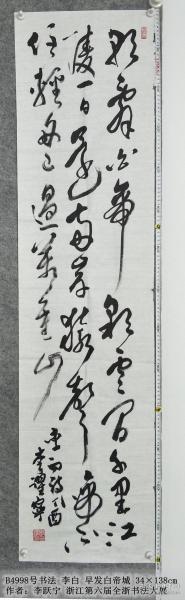 朝辭白帝彩雲間千里江
陵一日還兩岸猿聲啼不
住輕舟已過萬重山
李白詩丁酉
李躍寧
B4998号书法 李白 早发白帝城 34×138cm
作者: 李跃宁 浙江第六届全浙书法大展